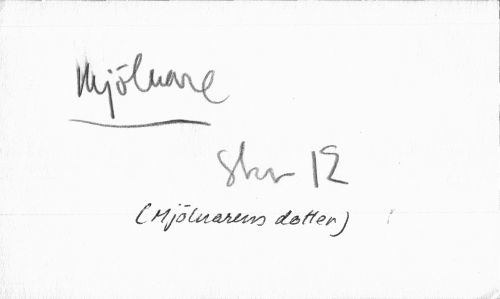 Mjölnare
Skr 12
(Mjölnarens dotter)